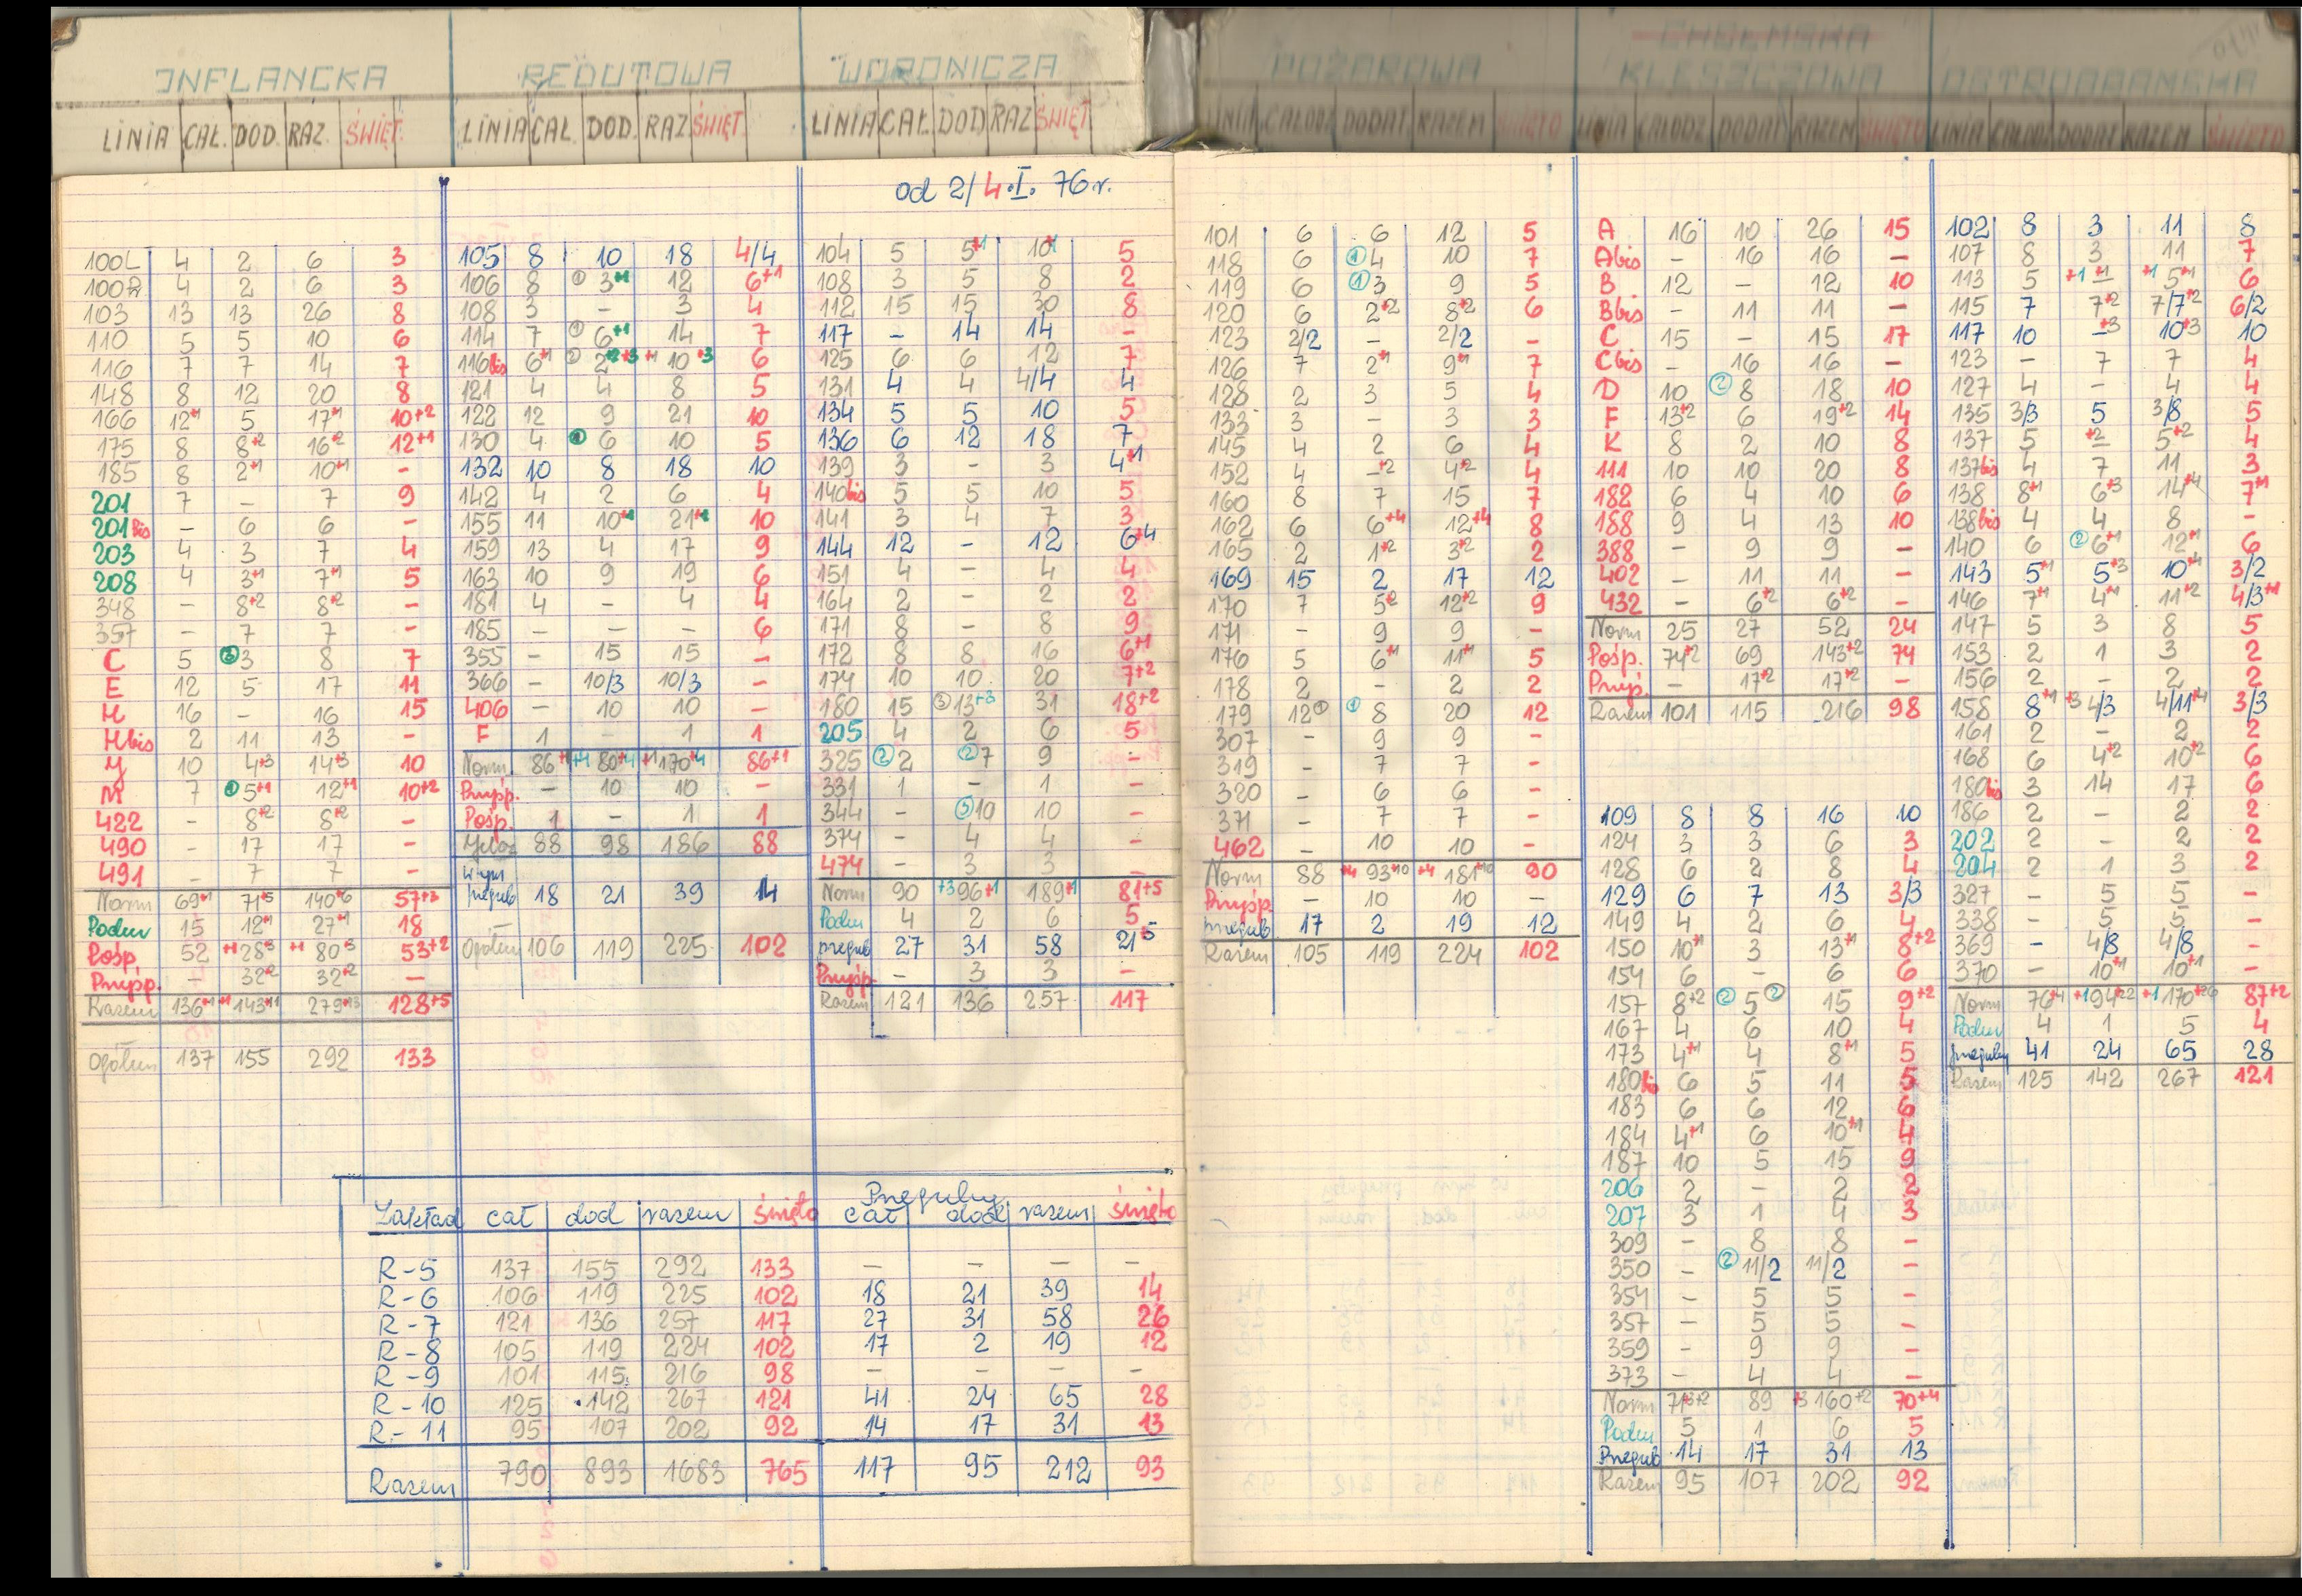 INFLANCKA
LINIA CAŁ. DOD. RAZ. ŚWIĘT.
100L 4 2 6 3
100P 4 2 6 3
103 13 13 26 8
110 5 5 10 6
116 7 7 14 7
148 8 12 20 8
166 12+1 5 17+1 10+2
175 8 8+2 16+2 12+1
185 8 2+1 10+1 -
201 7 - 7 9
201bis - 6 6 -
203 4 3 7 4
208 4 3+1 7+1 5
348 - 8+2 8+2 -
357 - 7 7 -
C 5 ③3 8 7
E 12 5 17 11
H 16 - 16 15
Hbis 2 11 13 -
J 10 4+3 14+3 10
M 7 ①5+1 12+1 10+2
422 - 8+2 8+2 -
490 - 17 17 -
491 - 7 7 -
Norm 69+1 71+5 140+6 57+3
Podm 15 12+1 27+1 18
Pośp. 52 +1 28+3 +1 80+3 53+2
Przysp. - 32+2 32+2 -
Razem 136+1 +1 143+11 279+13 128+5
Ogółem 137 155 292 133
REDUTOWA
LINIA CAŁ. DOD. RAZ. ŚWIĘT.
105 8 10 18 4/4
106 8 ①3+1 12 6+1
108 3 - 3 4
114 7 ①6+1 14 7
116bis 6+1 10+3 6
121 4 4 8 5
122 12 9 21 10
130 4 ①6 10 5
132 10 8 18 10
142 4 2 6 4
155 11 10+1 21+1 10
159 13 4 17 9
163 10 9 19 6
181 4 - 4 4
185 - - - 6
355 - 15 15 -
366 - 10/3 10/3 -
406 - 10 10 -
F 1 - 1 1
Norm. 86+1 +4 80+4 +1 170+4 86+1
Przysp. - 10 10 -
Pośp. 1 - 1 1
88 98 186 88
w tym
przegub 18 21 39 14
Ogółem 106 119 225 102
WORONICZA
LINIA CAŁ DOD RAZ ŚWIĘT
od 2/4.I.76r.
104 5 5+1 10+1 5
108 3 5 8 2
112 15 15 30 8
117 - 14 14 -
125 6 6 12 7
131 4 4 4/4 4
134 5 5 10 5
136 6 12 18 7
139 3 - 3 4+1
140bis 5 5 10 5
141 3 4 7 3
144 12 - 12 6+4
151 4 - 4 4
164 2 - 2 2
171 8 - 8 9
172 8 8 16 6+1
174 10 10 20 7+2
180 15 ③13+3 31 18+2
205 4 2 6 5
325 ②2 ②7 9 -
331 1 - 1 -
344 - ⑤10 10 -
374 - 4 4 -
474 - 3 3 -
Norm 90 +3 96+1 189+1 81+5
Podm 4 2 6 5
przegub 27 31 58 21+5
Przysp. - 3 3 -
Razem 121 136 257 117
POŻAROWA
LINIA CAŁODZ DODAT RAZEM ŚWIĘTO
101 6 6 12 5
118 6 ①4 10 7
119 6 ①3 9 5
120 6 2+2 8+2 6
123 2/2 - 2/2 -
126 7 2+1 9+1 7
128 2 3 5 4
133 3 - 3 3
145 4 2 6 4
152 4 -+2 4+2 4
160 8 7 15 7
162 6 6+4 12+4 8
165 2 1+2 3+2 2
169 15 2 17 12
170 7 5+2 12+2 9
171 - 9 9 -
176 5 6+1 11+1 5
178 2 - 2 2
179 12① ①8 20 12
307 - 9 9 -
319 - 7 7 -
320 - 6 6 -
371 - 7 7 -
462 - 10 10 -
Norm 88 +4 93+10 +4 181+10 90
Przysp. - 10 10 -
przegub. 17 2 19 12
Razem 105 119 224 102
CHEŁMSKA
KLESZCZOWA
LINIA CAŁODZ DODAT RAZEM ŚWIĘTO
A 16 10 26 15
Abis - 16 16 -
B 12 - 12 10
Bbis - 11 11 -
C 15 - 15 17
Cbis - 16 16 -
D 10 ②8 18 10
F 13+2 6 19+2 14
K 8 2 10 8
111 10 10 20 8
182 6 4 10 6
188 9 4 13 10
388 - 9 9 -
402 - 11 11 -
432 - 6+2 6+2 -
Norm 25 27 52 24
Pośp. 74+2 69 143+2 74
Przysp. - 17+2 17+2 -
Razem 101 115 216 98
109 8 8 16 10
124 3 3 6 3
128 6 2 8 4
129 6 7 13 3/3
149 4 2 6 4
150 10+1 3 13+1 8+2
154 6 - 6 6
157 8+2 ②5② 15 9+2
167 4 6 10 4
173 4+1 4 8+1 5
180bis 6 5 11 5
183 6 6 12 6
184 4+1 6 10+1 4
187 10 5 15 9
206 2 - 2 2
207 3 1 4 3
309 - 8 8 -
350 - ②11/2 11/2 -
354 - 5 5 -
357 - 5 5 -
359 - 9 9 -
373 - 4 4 -
Norm 71+3+2 89 +3 160+2 70+4
Podm 5 1 6 5
Przegub 14 17 31 13
Razem 95 107 202 92
OSTROBRAMSKA
LINIA CAŁODZ DODAT RAZEM ŚWIĘTO
102 8 3 11 8
107 8 3 11 7
113 5 +1 +1 - +1 5+1 6
115 7 7+2 7/7+2 6/2
117 10 -+3 10+3 10
123 - 7 7 4
127 4 - 4 4
135 3/3 5 3/8 5
137 5 -+2 5+2 4
137bis 4 7 11 3
138 8+1 6+3 14+4 7+1
138bis 4 4 8 -
140 6 ②6+1 12+1 6
143 5+1 5+3 10+4 3/2
146 7+1 4+1 11+2 4/3+1
147 5 3 8 5
153 2 1 3 2
156 2 - 2 2
158 8+1 +3 4/3 4/11+4 3/3
161 2 - 2 2
168 6 4+2 10+2 6
180bis 3 14 17 6
186 2 - 2 2
202 2 - 2 2
204 2 1 3 2
327 - 5 5 -
338 - 5 5 -
369 - 4/8 4/8 -
370 - 10+1 10+1 -
Norm 76+4 +1 94+22 +1 170+26 87+2
Podm 4 1 5 4
przeguby 41 24 65 28
Razem 125 142 267 121
Przeguby
Zakład cał dod razem święto cał dod razem święto
R-5 137 155 292 133 - - - -
R-6 106 119 225 102 18 21 39 14
R-7 121 136 257 117 27 31 58 26
R-8 105 119 224 102 17 2 19 12
R-9 101 115 216 98 - - - -
R-10 125 142 267 121 41 24 65 28
R-11 95 107 202 92 14 17 31 13
Razem 790 893 1683 765 117 95 212 93